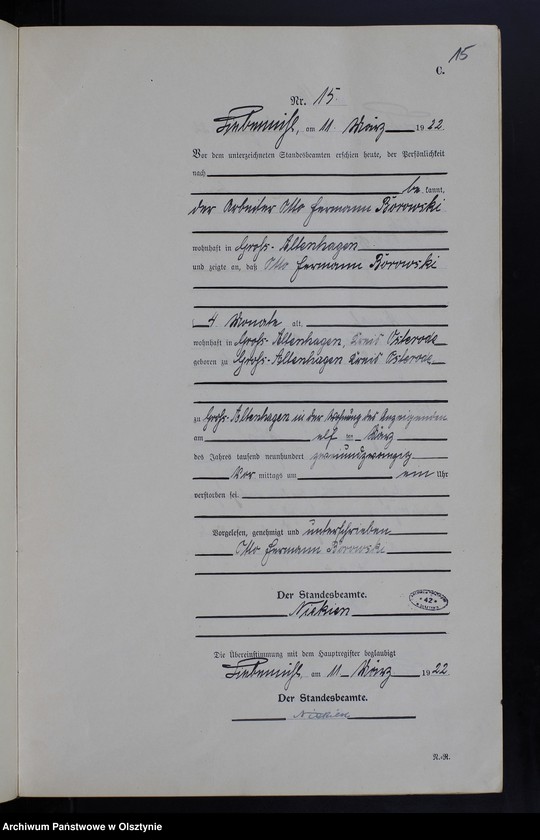 15
C.
Nr. 15.
Liebemühl, am 11. März 1922
Vor dem unterzeichneten Standesbeamten erschien heute, der Persönlichkeit
nach
be kannt,
der Arbeiter Otto Hermann Borowski
wohnhaft in Groß-Altenhagen
und zeigte an, daß Otto Hermann Borowski
4 Monate alt,
wohnhaft in Groß-Altenhagen, Kreis Osterode
geboren zu Groß-Altenhagen Kreis Osterode
zu Groß-Altenhagen in der Wohnung des Anzeigenden
am elf ten März
des Jahres tausend neunhundert zweiundzwanzig
Vor mittags um ein Uhr
verstorben sei.
Vorgelesen, genehmigt und unterschrieben
Otto Hermann Borowski
Der Standesbeamte.
42
Die Übereinstimmung mit dem Hauptregister beglaubigt
Liebemühl, am 11. März 1922.
Der Standesbeamte.
N.-R.
Archiwum Państwowe w Olsztynie